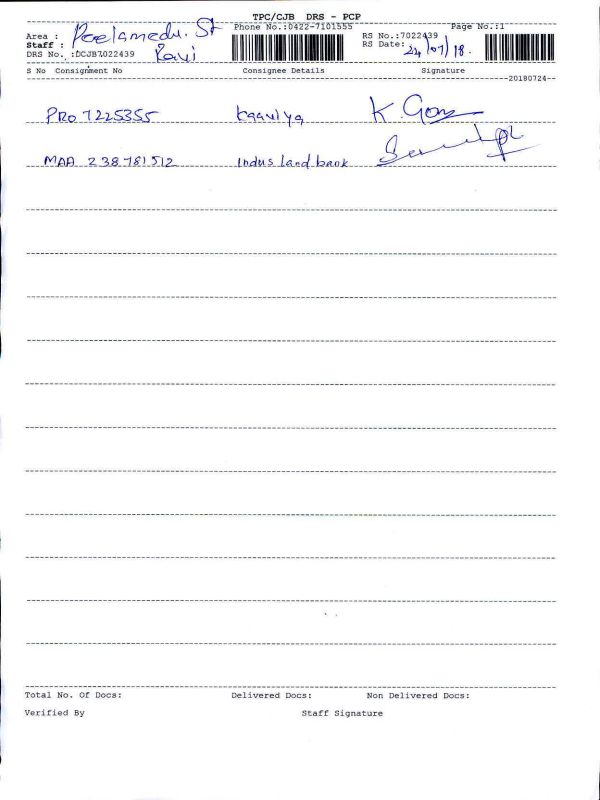 TPC/CJB DRS - PCP
Area : Peelamedu. St Phone No.:0422-7101555 Page No.:1
Staff : Ravi RS No.:7022439
DRS No. :DCJB7022439 RS Date: 24/07/18.
S No Consignment No Consignee Details Signature
20180724
PRO 7225355 Kaaviya K. Gom
MAA 238781512 Indus land bank
Total No. Of Docs: Delivered Docs: Non Delivered Docs:
Verified By Staff Signature